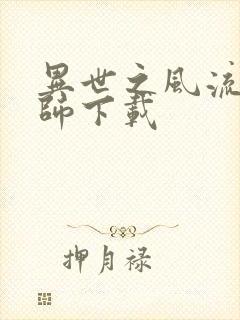 異世之風流
師下載
押月禄